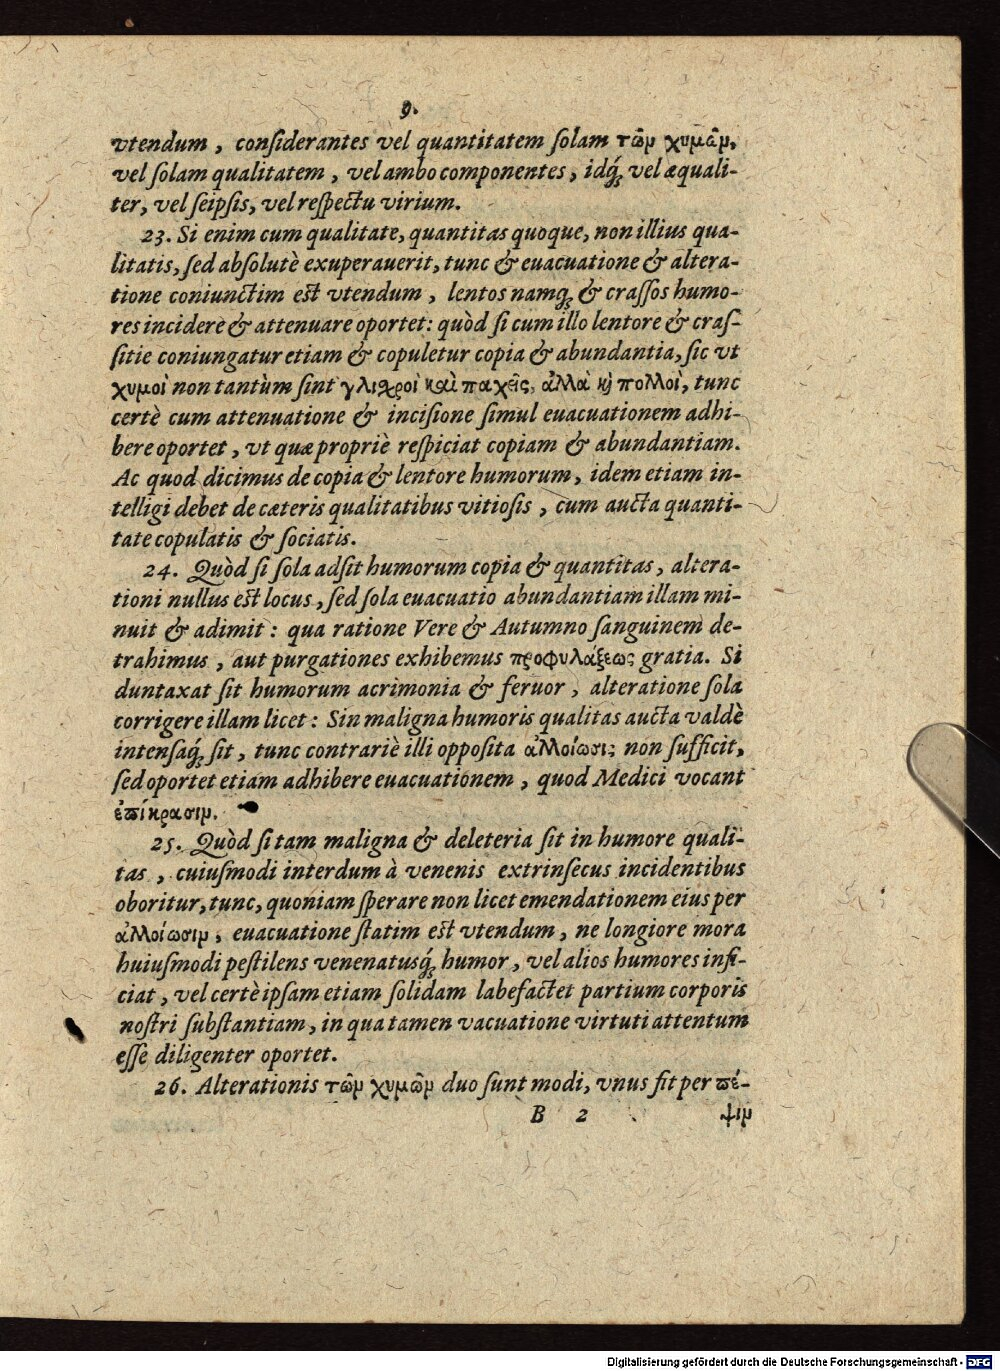 9.
vtendum, considerantes vel quantitatem solam τῶν χυμῶν,
vel solam qualitatem, vel ambo componentes, idq́; vel æquali-
ter, vel seipsis, vel respectu virium.
23. Si enim cum qualitate, quantitas quoque, non illius qua-
litatis, sed absolutè exuperauerit, tunc & euacuatione & altera-
tione coniunctim est vtendum, lentos namq́; & crassos humo-
res incidere & attenuare oportet: quòd si cum illo lentore & cras-
sitie coniungatur etiam & copuletur copia & abundantia, sic vt
χυμοὶ non tantùm sint γλιχροὶ καὶ παχεῖς, ἀλλὰ κὶ πολλοὶ, tunc
certè cum attenuatione & incisione simul euacuationem adhi-
bere oportet, vt quæ propriè respiciat copiam & abundantiam.
Ac quod dicimus de copia & lentore humorum, idem etiam in-
telligi debet de cæteris qualitatibus vitiosis, cum aucta quanti-
tate copulatis & sociatis.
24. Quòd si sola adsit humorum copia & quantitas, altera-
tioni nullus est locus, sed sola euacuatio abundantiam illam mi-
nuit & adimit: qua ratione Vere & Autumno sanguinem de-
trahimus, aut purgationes exhibemus προφυλάξεως gratia. Si
duntaxat sit humorum acrimonia & feruor, alteratione sola
corrigere illam licet: Sin maligna humoris qualitas aucta valdè
intensaq́; sit, tunc contrariè illi opposita ἀλλοίωσις non sufficit,
sed oportet etiam adhibere euacuationem, quod Medici vocant
ἐπίκρασιν.
25. Quòd si tam maligna & deleteria sit in humore quali-
tas, cuiusmodi interdum à venenis extrinsecus incidentibus
oboritur, tunc, quoniam sperare non licet emendationem eius per
ἀλλοίωσιν, euacuatione statim est vtendum, ne longiore mora
huiusmodi pestilens venenatusq́; humor, vel alios humores infi-
ciat, vel certè ipsam etiam solidam labefactet partium corporis
nostri substantiam, in qua tamen vacuatione virtuti attentum
esse diligenter oportet.
26. Alterationis τῶν χυμῶν duo sunt modi, vnus fit per πέ-
B 2 ψιν
Digitalisierung gefördert durch die Deutsche Forschungsgemeinschaft - DFG